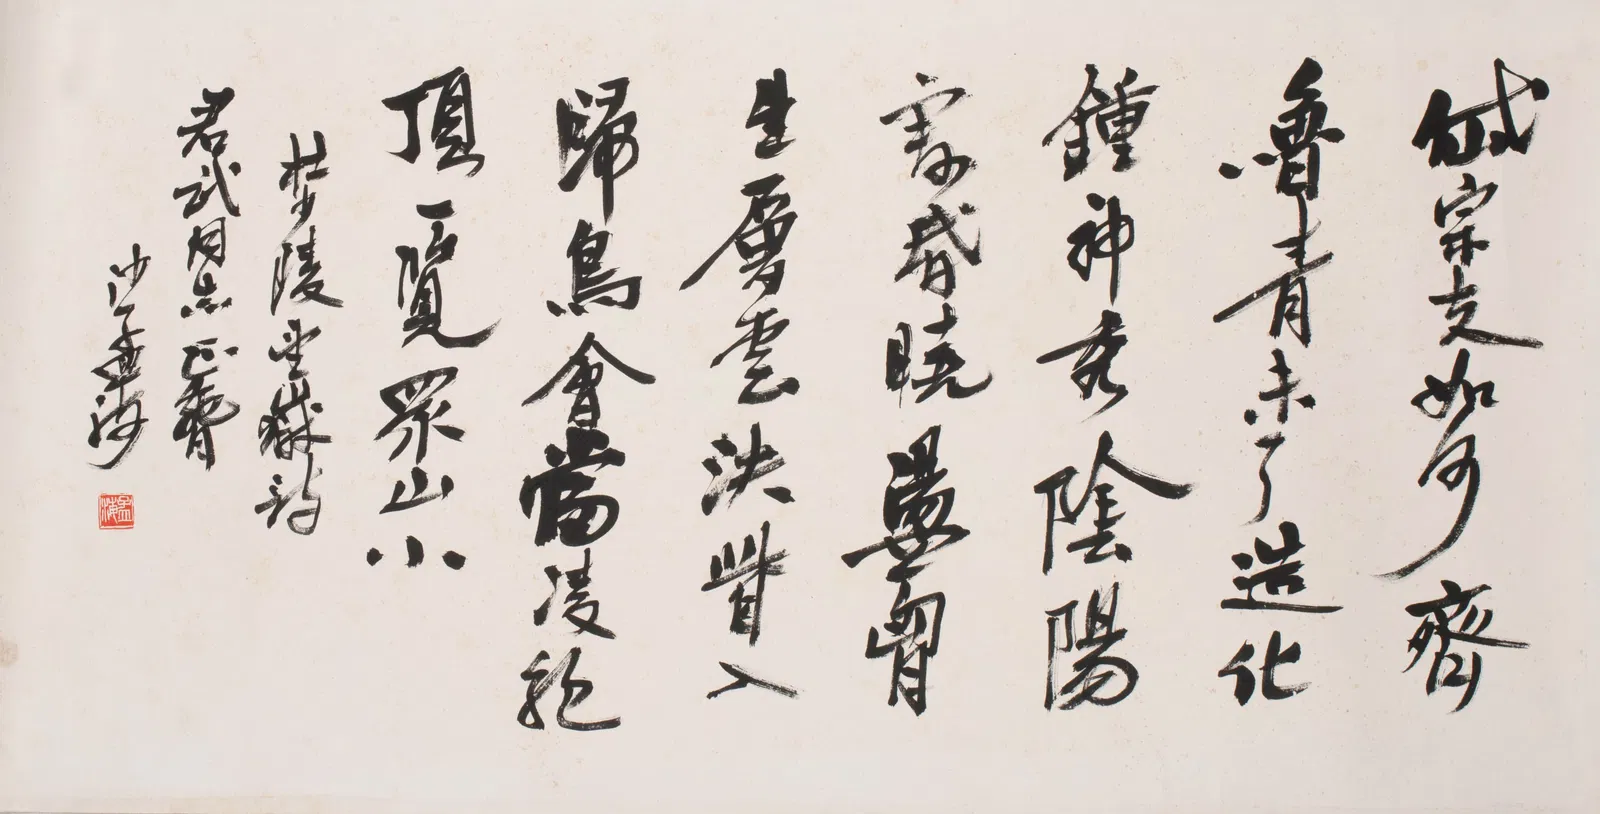 岱宗夫如何齊
魯青未了造化
鍾神秀陰陽
割昏曉盪胷
生層雲決眥入
歸鳥會當凌絕
頂一覽眾山小
杜少陵望嶽詩
君武同志正
沙孟海
孟海